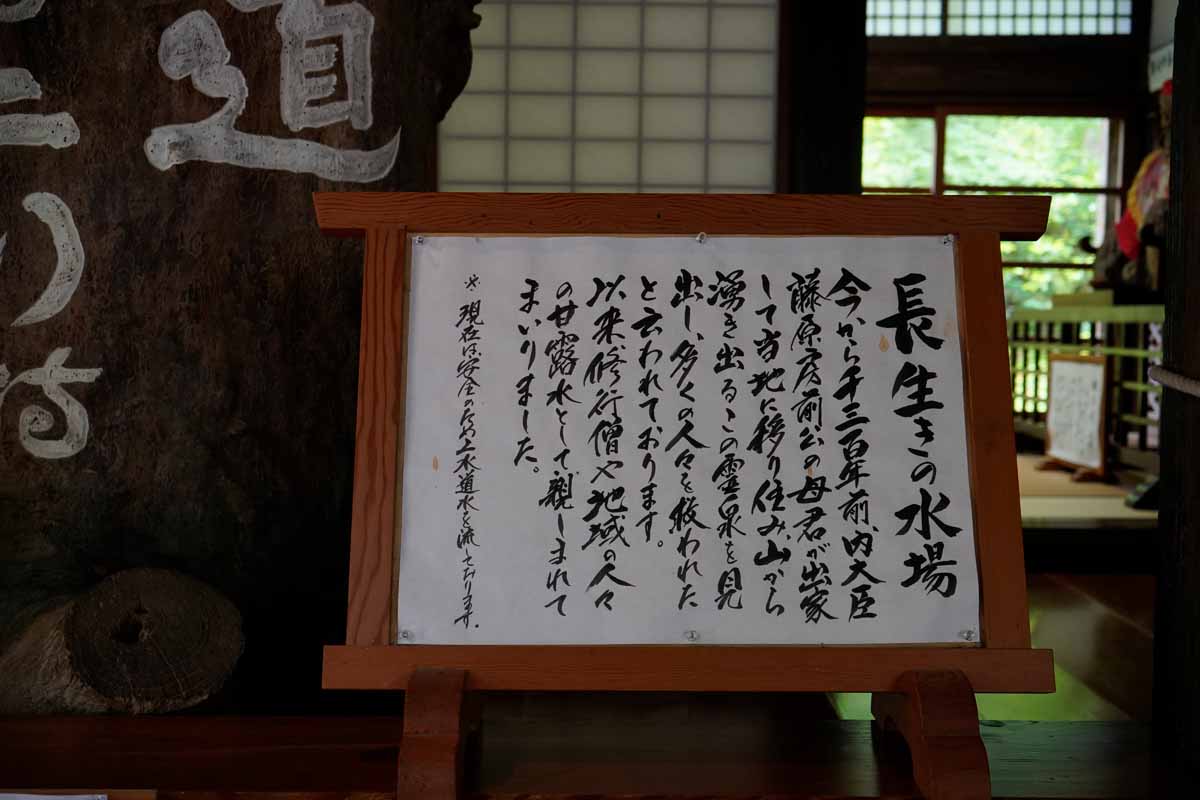 長生きの水場
今から千三百年前、内大臣
藤原房前公の母君が出家
して当地に移り住み、山から
湧き出るこの霊泉を見
出し、多くの人々を救われた
と云われております。
以来、修行僧や地域の人々
の甘露水として、親しまれて
まいりました。
※現在は安全のため上水道水を流しております。
道